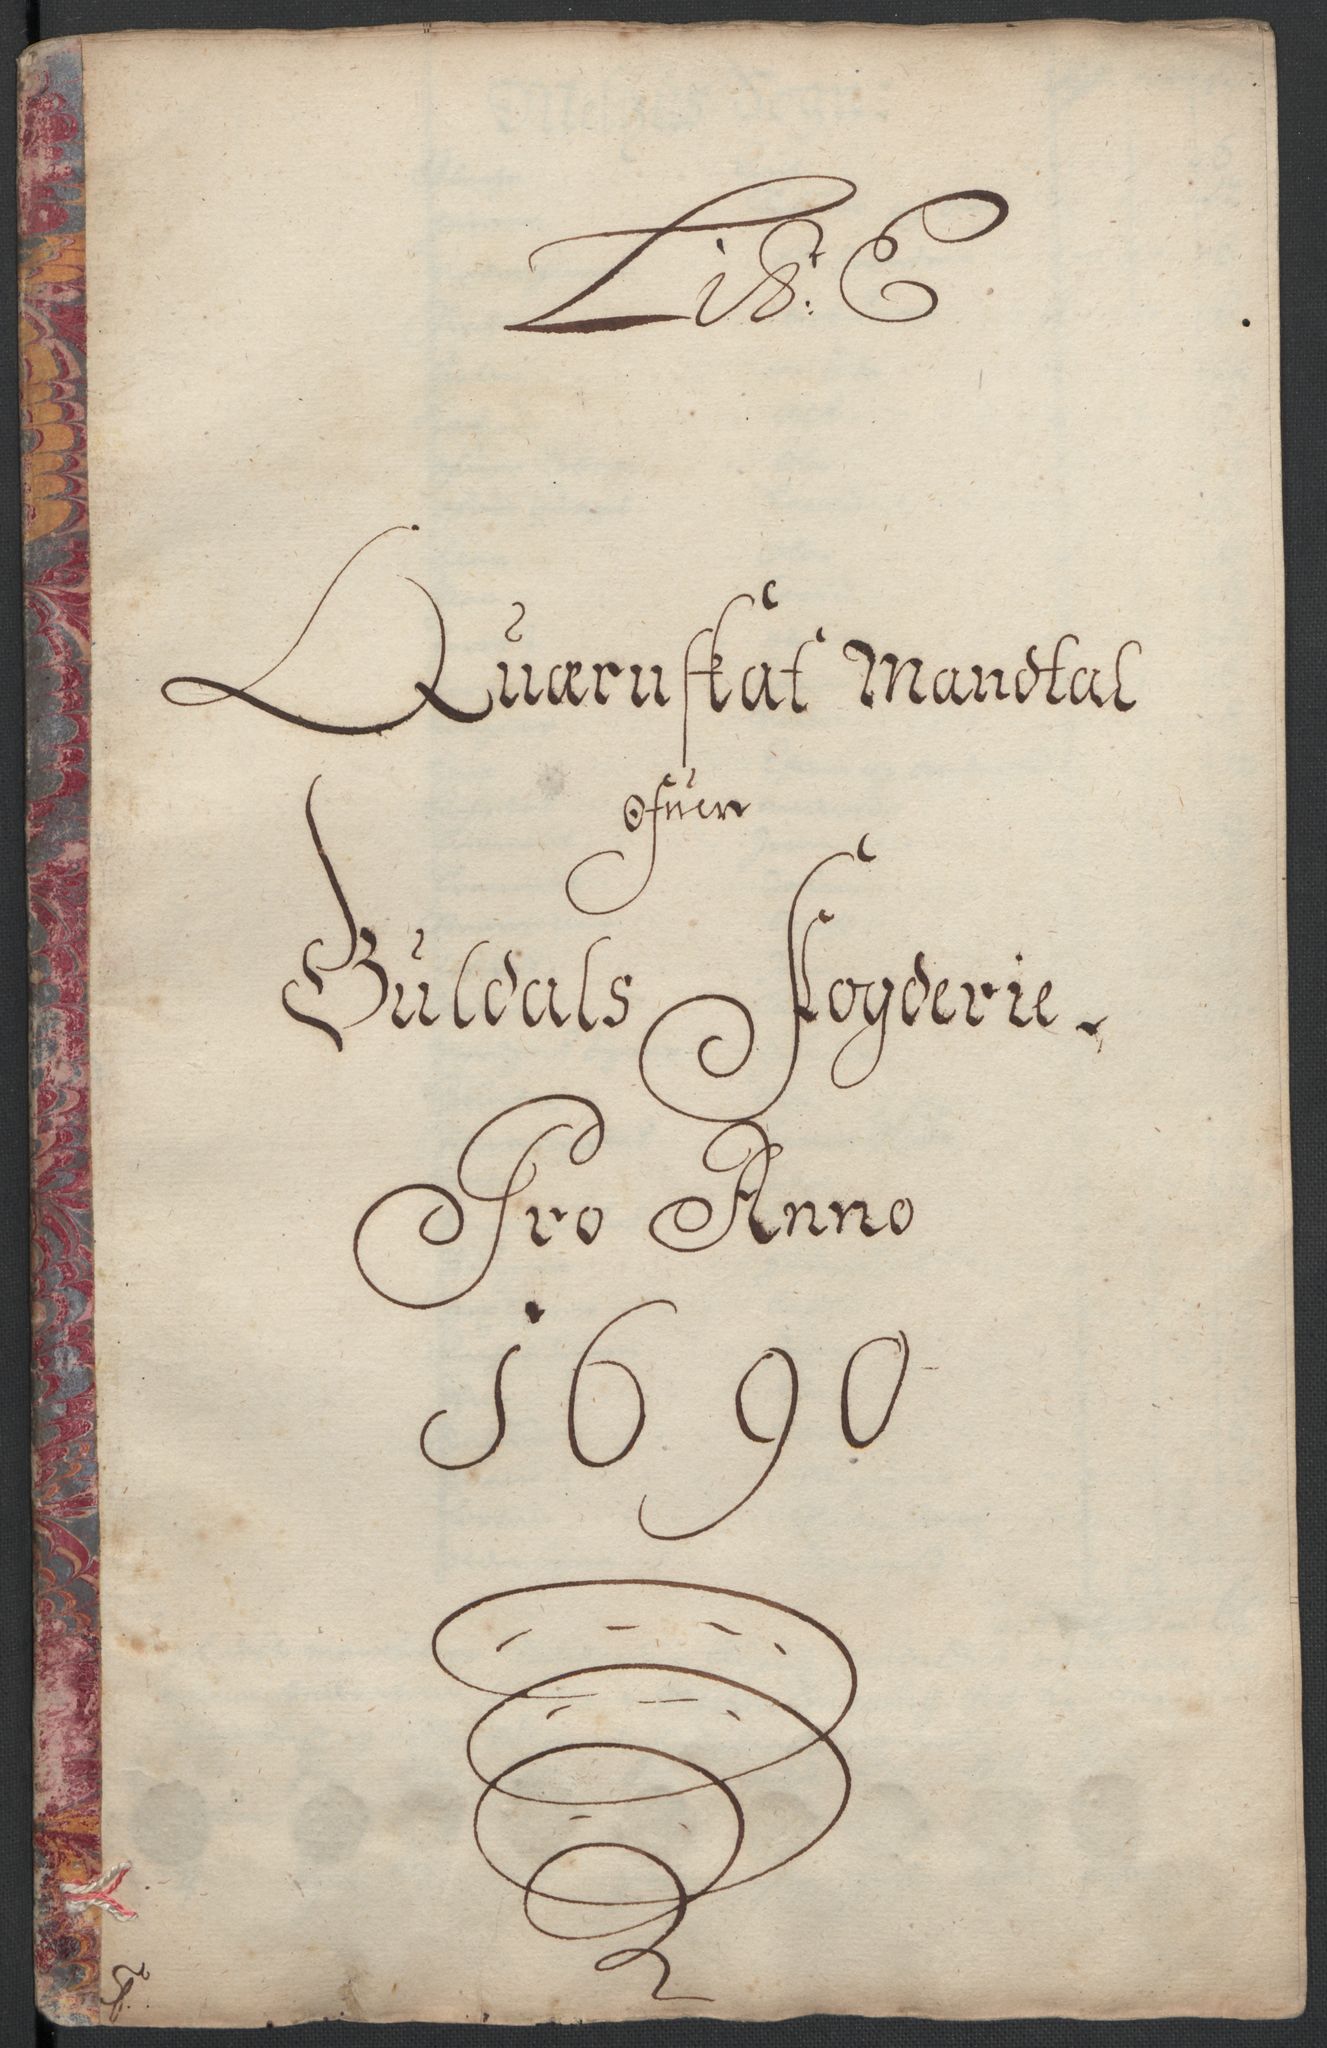 List: E
Quærnskat Mandtal
Ofuer
Guldals Fogderie
Pro Anno
1690